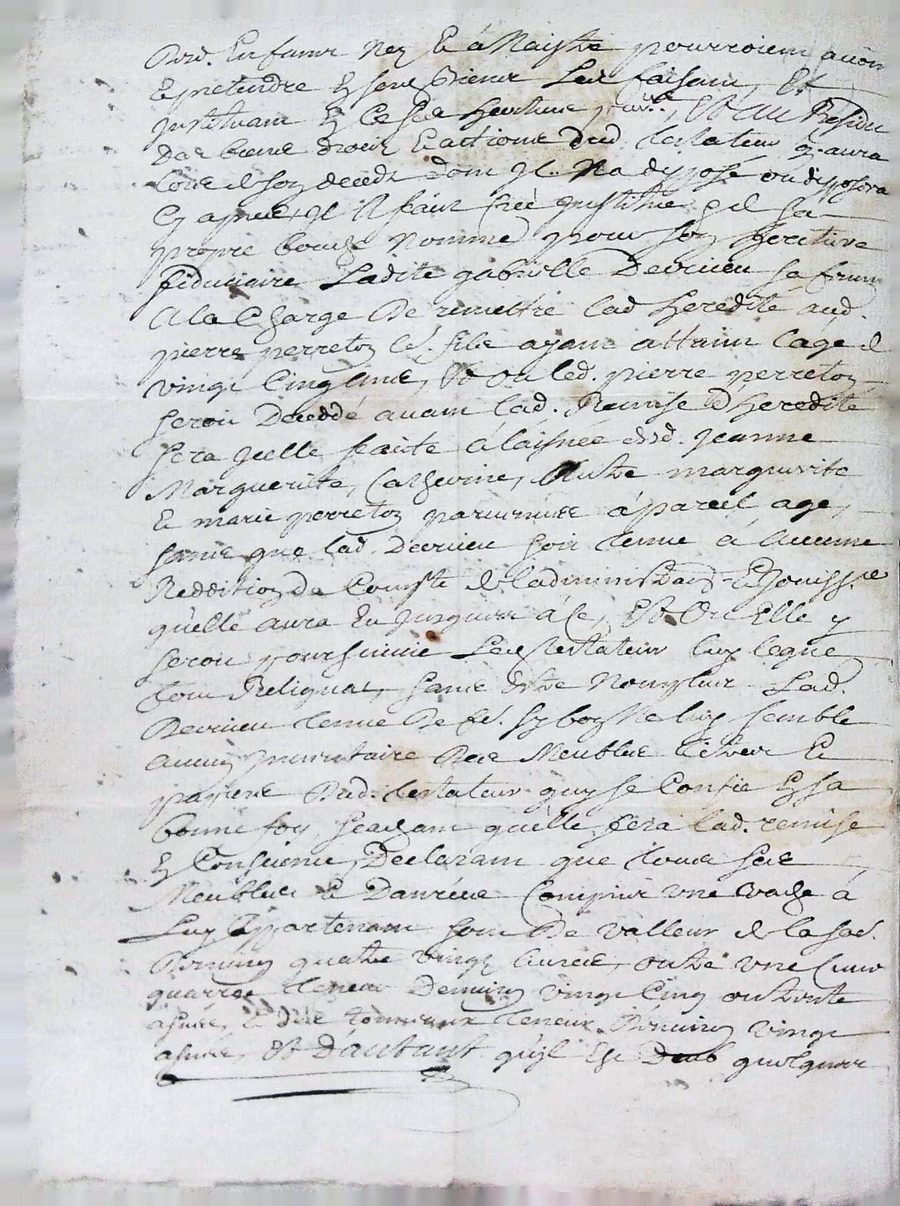 Dud. Enfans Nez Et á Naistre pourroient avoir
Et pretendre En ses Biens Les faisant, Et
Jnstituant En Ce Ses heritiers, Et Au Residu
Des biens droits Et actions Dud. testateur qu'aura
Lors de son deceds dont Jl Na disposé ou disposera
Cy apres, Jl A fait Créé Jnstitué Et de Sa
propre bouche Nommé pour Son heritiere
fiduciaire Ladite gabrielle Devrieu Sa femme
A la Charge De remettre lad heredité aud.
pierre perreton Sr. fils ayant attaint l'age de
vingt Cinq ans, Et ou led. pierre perreton
Seroit Deceddé avant lad. Remise Lad heredité
Sera Jcelle faicte á laisnée desd. Jeanne
Marguerite, Catherine, Autre marguerite
Et marie perreton parvenues á pareil age,
Sans que lad. Devrieu Soit tenue á aucune
Reddition de Compte de Ladministraon Et Jouissce
qu'elle aura Eu Jusques á Ce, Et Ou Elle y
Seroit poursuivie Led testateur luy legue
tout Reliquat, Sans Estre Non plus Lad.
Devrieu tenue De fe. Sy bon Ne luy Semble
aucun Jnventaire Des Meubles titres Et
papiers Dud. testateur quy Se Confie En Sa
bonne foy Scachant qu'elle fera lad. remise
En Conscience, Declarant que tous Ses
Meubles Et Danrées Compris une vache á
Luy Appartenant Sont De valleur de la So.
Denviron quatre vingt livres, outre une Cuve
quarrée teneur Denviron vingt Cinq ou trente
asnées, Et Dix tonneaux teneur Denviron vingt
asnées, Et Dautant qu'jl Est Deub quelques